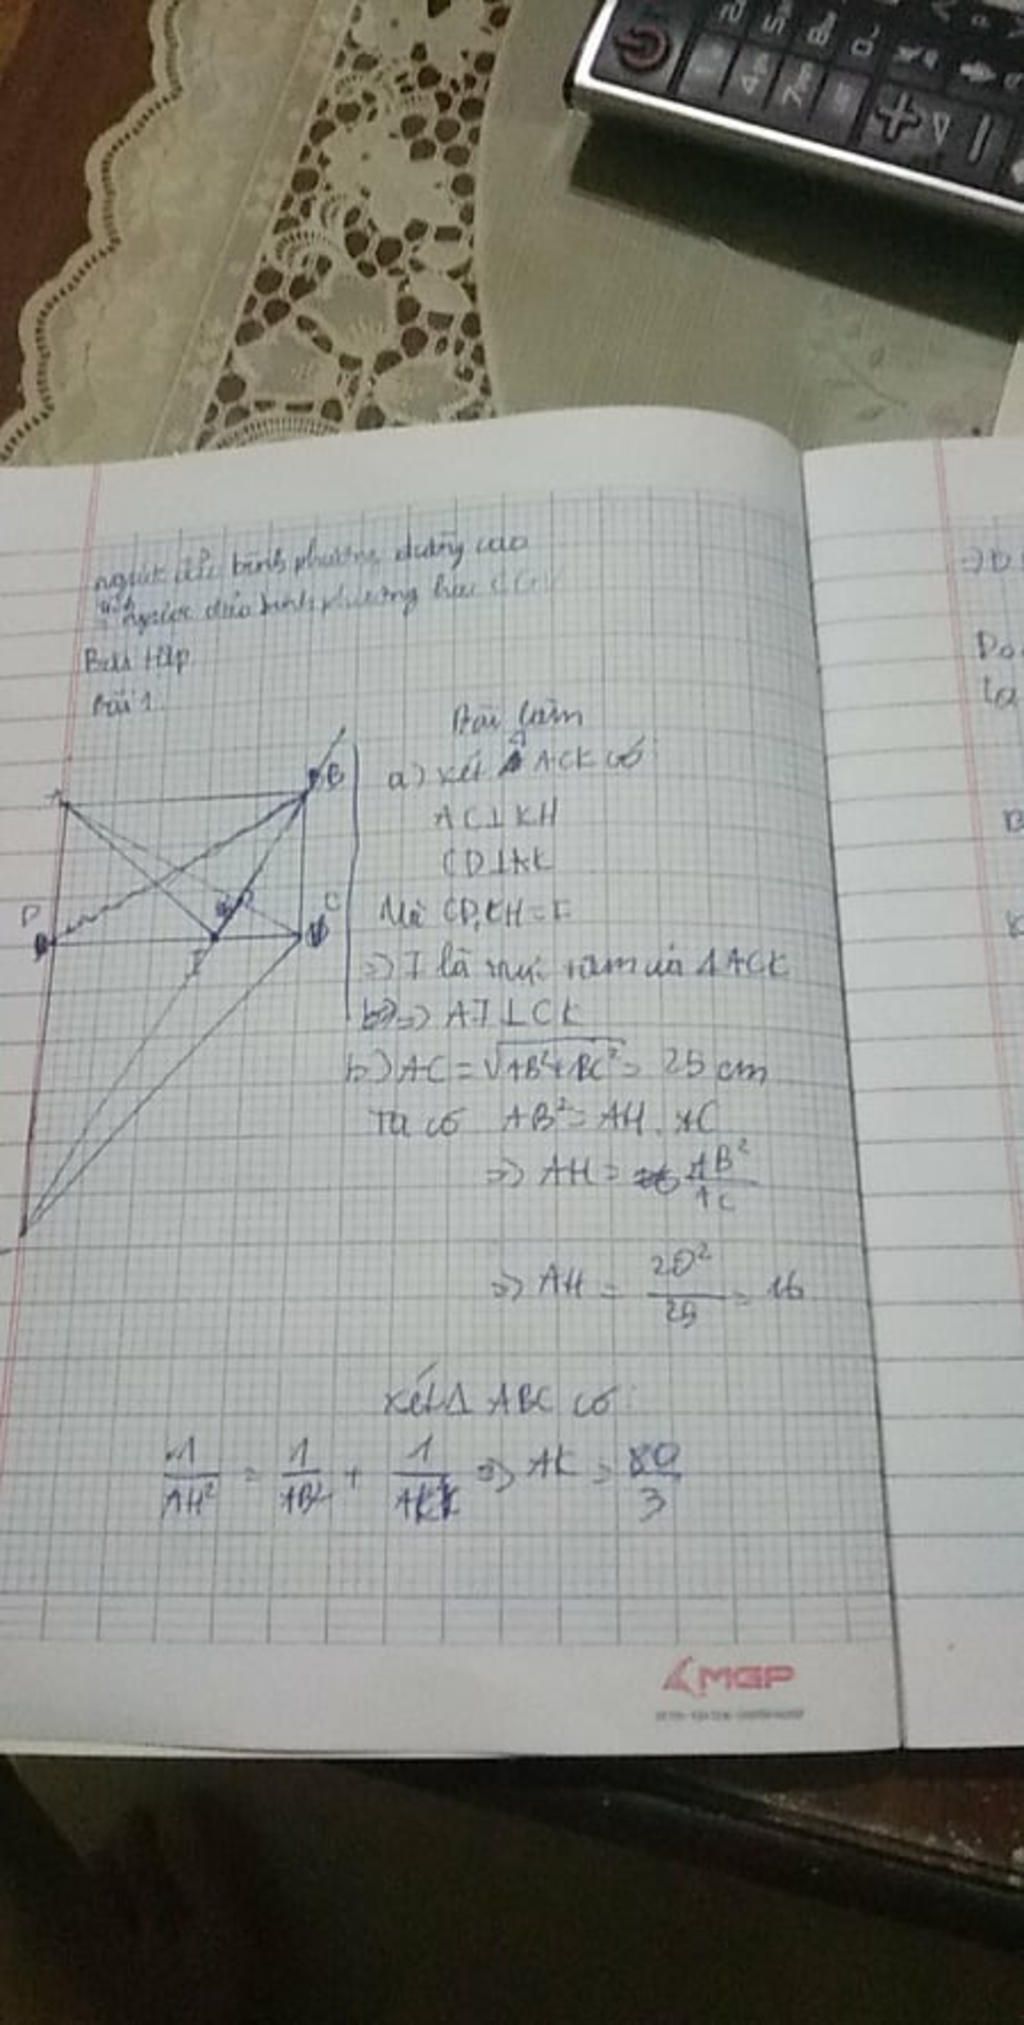 nghịch đảo bình phương đường cao
nghịch đảo bình phương hai CGV
Bài tập
Bài 1
Bài làm
a) Xét Δ ACK có
AC⊥KH
CD⊥AK
Mà CD,KH = I
=> I là trực tâm của ΔACK
b) => AI⊥CK
b) AC = √AB²+BC² = 25 cm
Ta có AB² = AH . AC
=> AH = AB²/AC
=> AH = 20²/25 = 16
Xét Δ ABC có:
1/AH² = 1/AB² + 1/AK² => AK = 80/3
A
B
D
C
I
MGP
4
7